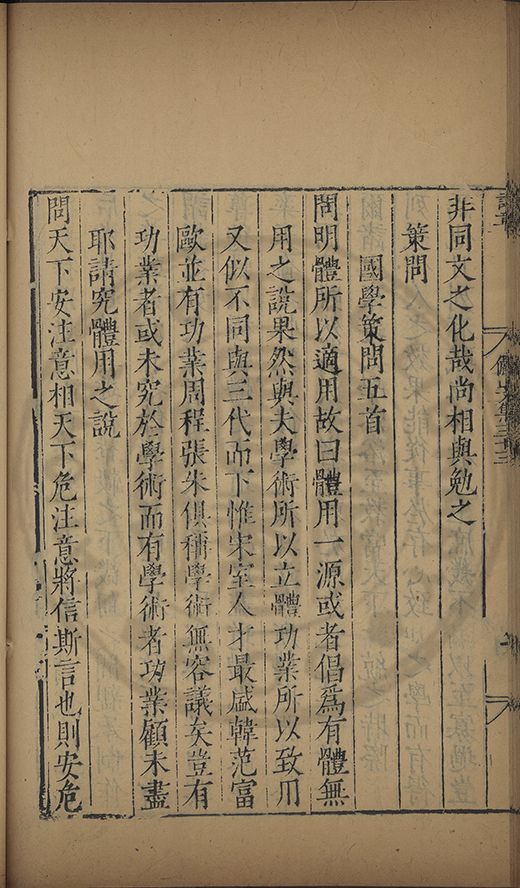 非同文之化哉尚相與勉之
策問
國學策問五首
問明體所以適用故曰體用一源或者倡爲有體無
用之說果然與夫學術所以立體功業所以致用
又似不同與三代而下惟宋室人才最盛韓范富
歐並有功業周程張朱俱稱學術無容議矣豈有
功業者或未究於學術而有學術者功業顧未盡
耶請究體用之說
問天下安注意相天下危注意將信斯言也則安危